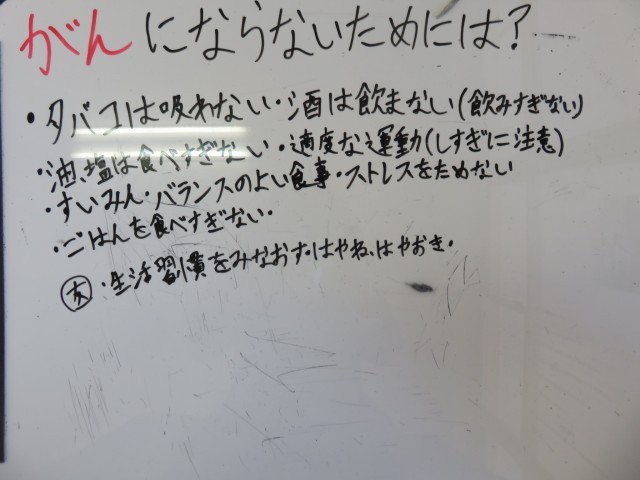 がんにならないためには?
・タバコは吸わない・酒は飲まない(飲みすぎない)
・油、塩は食べすぎない・適度な運動(しすぎに注意)
・すいみん・バランスのよい食事・ストレスをためない
・ごはんを食べすぎない・
・生活習慣をみなおす・はやね、はやおき・